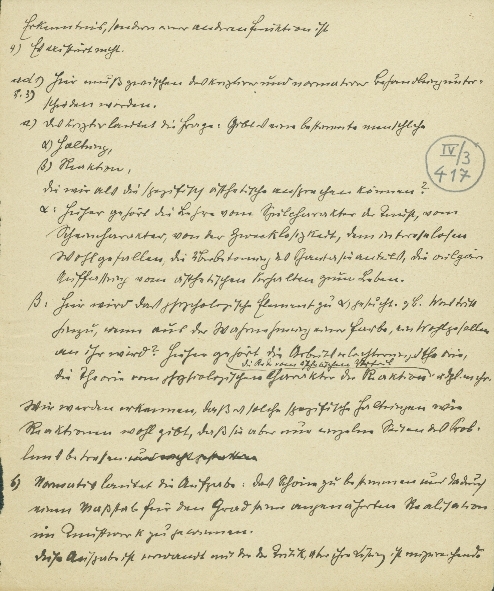 Erkenntnis, sondern einer anderen Funktion ist
4) Existiert nicht.
ad 1) Hier muß zwischen deskriptiver und normativer Behandlung unter-
2. 3)
schieden werden.
a) deskriptiv lautet die Frage: Gibt es eine bestimmte menschliche
α) Haltung,
β) Reaktion,
die wir als die spezifisch ästhetische ansprechen können?
IV/3
417
α: Hierher gehört die Lehre vom Spielcharakter der Kunst, vom
Scheincharakter, von der Zwecklosigkeit, dem interesselosen
Wohlgefallen, die Überbetonung des Phantasieanteils, die
Auffassung vom ästhetischen Verhalten zum Leben.
β: Hier wird das psychologische Element zu α) gesucht. z.B. Was tritt
hinzu, wenn aus der Wahrnehmung einer Farbe, ein Wohlgefallen
an ihr wird? Hierher gehört die
die Theorie vom physiologischen Charakter der Reaktion
Wir werden erkennen, daß es solche spezifische Haltungen wie
Reaktionen wohl gibt, daß sie aber nur einzelne Seiten des Prob-
lems betreffen
b) Normativ lautet die Aufgabe: das Schöne zu bestimmen und dadurch
einen Maßstab für den Grad seiner angenäherten Realisation
im Kunstwerk zu gewinnen.
Diese Aufgabe ist verwandt mit der der Kritik, aber ihre Lösung ist